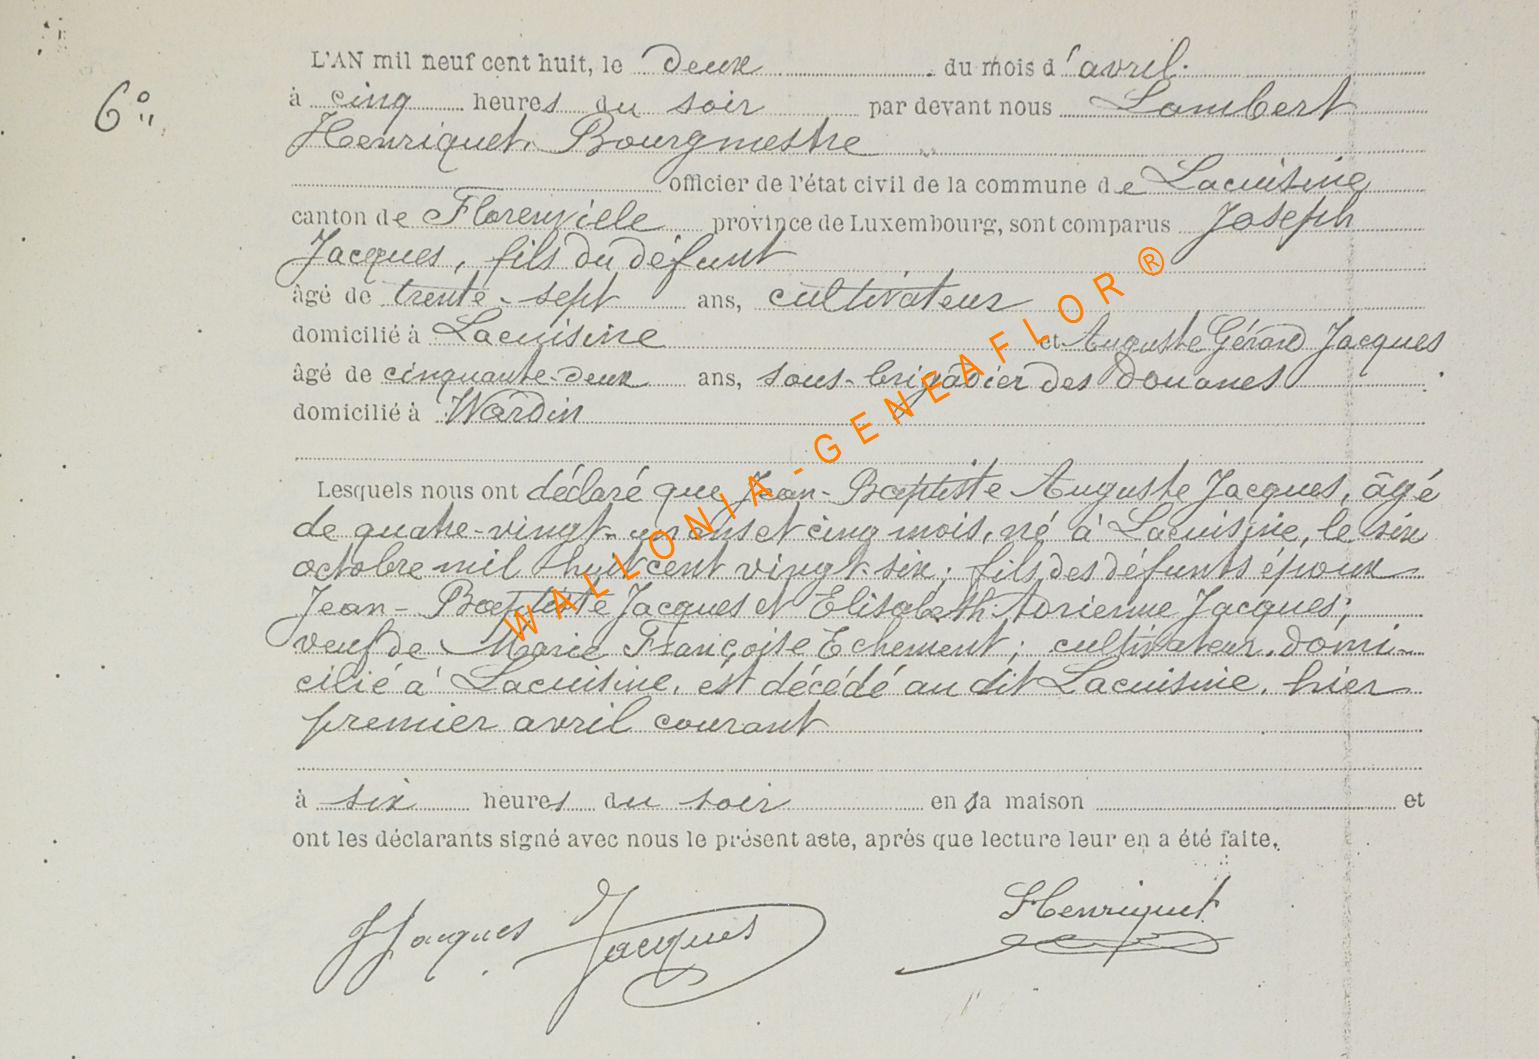 L'AN mil neuf cent huit, le deux du mois d'avril.
6°
à cinq heures du soir par devant nous Lambert
Henriquet, Bourgmestre
officier de l'état civil de la commune de Lacuisine
canton de Florenville province de Luxembourg, sont comparus Joseph
Jacques, fils du défunt
âgé de trente-sept ans, cultivateur
domicilié à Lacuisine et Auguste Gérard Jacques
âgé de cinquante-deux ans, sous-brigadier des douanes
domicilié à Wardin
Lesquels nous ont déclaré que Jean-Baptiste Auguste Jacques, âgé
de quatre-vingt-un ans et cinq mois, né à Lacuisine, le six
octobre mil huit cent vingt-six; fils des défunts époux
Jean-Baptiste Jacques et Elisabeth Adrienne Jacques;
veuf de Marie Françoise Echement; cultivateur, domi-
cilié à Lacuisine, est décédé au dit Lacuisine, hier
premier avril courant
à six heures du soir en sa maison et
ont les déclarants signé avec nous le présent acte, après que lecture leur en a été faite.
JJacques Jacques LHenriquet
WALLONIA-GENEAFLOR ®